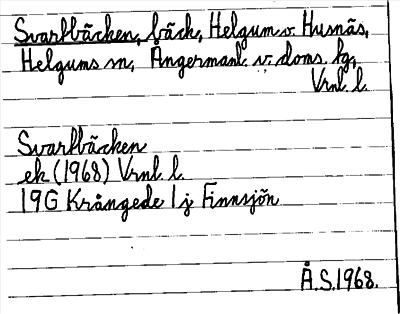 Svartbäcken, bäck, Helgum v. Husnäs,
Helgums sn, Ångermanl. v. doms. hg,
Vrnl. l.
Svartbäcken
ek (1968) Vrnl. l.
19G Krångede 1 j Finnsjön
Å.S. 1968.